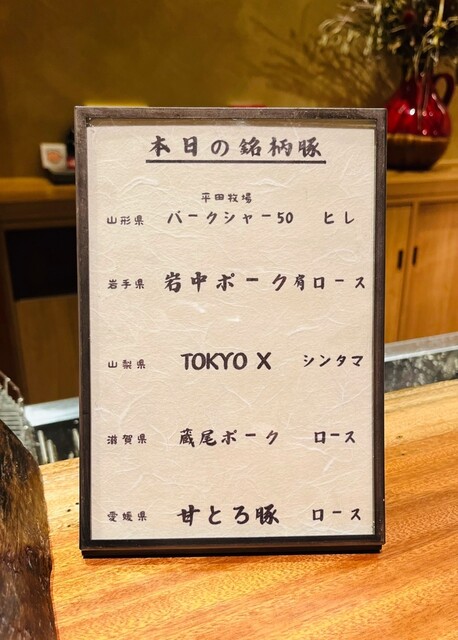 本日の銘柄豚
平田牧場
山形県 バークシャー50 ヒレ
岩手県 岩中ポーク 肩ロース
山梨県 TOKYO X シンタマ
滋賀県 蔵尾ポーク ロース
愛媛県 甘とろ豚 ロース